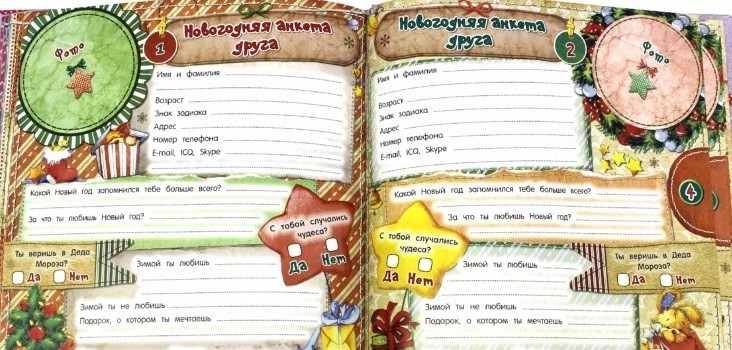 Фото
1
Новогодняя анкета
друга
Имя и фамилия
Возраст
Знак зодиака
Адрес
Номер телефона
E-mail, ICQ, Skype
Какой Новый год запомнился тебе больше всего?
За что ты любишь Новый год?
С тобой случались
чудеса?
Да Нет
Ты веришь в Деда
Мороза?
Да Нет
Зимой ты любишь
Зимой ты не любишь
Подарок, о котором ты мечтаешь
Новогодняя анкета
друга
2
Фото
Имя и фамилия
Возраст
Знак зодиака
Адрес
Номер телефона
E-mail, ICQ, Skype
4
Какой Новый год запомнился тебе больше всего?
За что ты любишь Новый год?
С тобой случались
чудеса?
Да Нет
Ты веришь в Деда
Мороза?
Да Нет
Зимой ты любишь
Зимой ты не любишь
Подарок, о котором ты мечтаешь